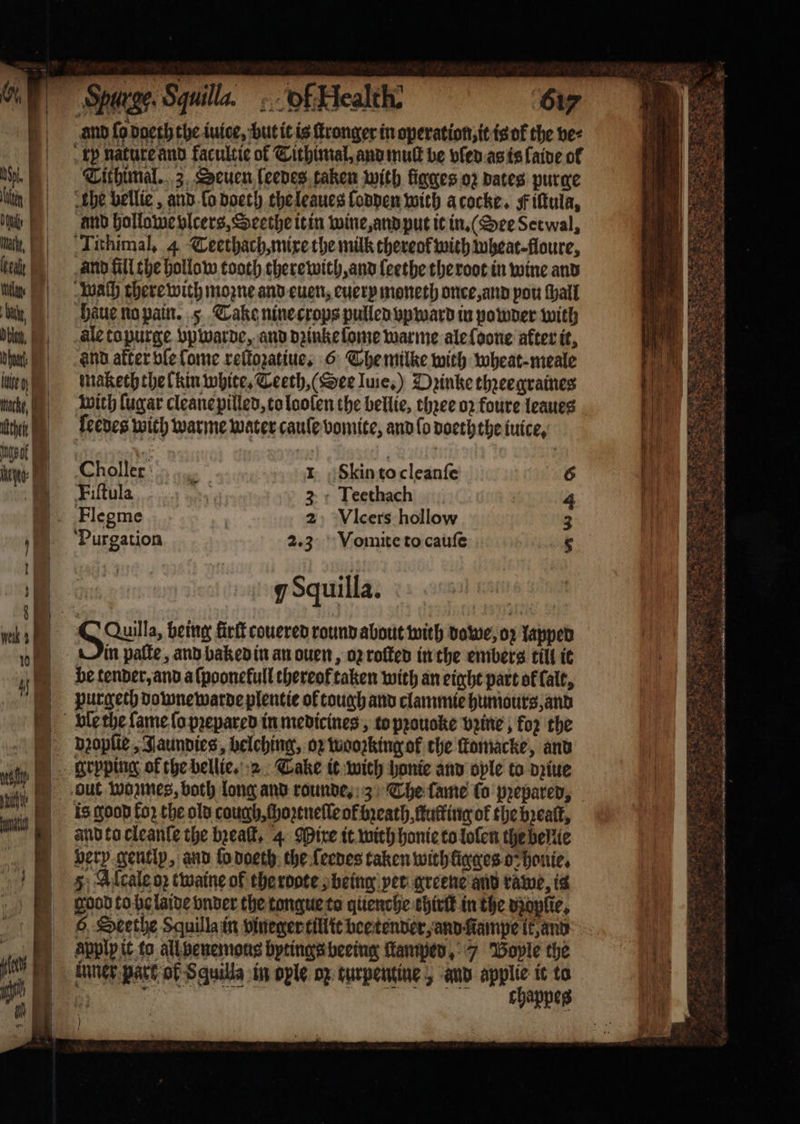 Spurge. Squilla. of Health. 617
and so doeth the iuice, but it is stronger in operation, it is of the ve-
ry nature and facultie of Tithimal, and must be vsed as is saide of
Tithimal. 3. Seuen seedes taken with figges or dates purge
the bellie, and so doeth the leaues sodden with a cocke. Fistula,
and hollowe vlcers, Seethe it in wine, and put it in. (See Setwal,
Tithimal, 4 Teethach, mixe the milk thereof with wheat-floure,
and fill the hollow tooth therewith, and seethe the root in wine and
wash therewith morne and euen, euery moneth once, and you shall
haue no pain. 5 Take nine crops pulled vpward in powder with
ale to purge vpwarde, and drinke some warme ale soone after it,
and after vse some restoratiue. 6 The milke with wheat-meale
maketh the skin white. Teeth, (See Iuie.) Drinke three graines
with sugar cleane pilled, to loosen the bellie, three or foure leaues
seedes with warme water cause vomite, and so doeth the iuice.
Choller 1 Skin to cleanse 6
Fistula 3 Teethach 4
Flegme 2 Vlcers hollow 3
Purgation 2.3 Vomite to cause 5
¶ Squilla.
SQuilla, being first couered round about with dowe, or lapped
in paste, and baked in an ouen, or rosted in the embers till it
be tender, and a spoonefull thereof taken with an eight part of salt,
purgeth downewarde plentie of tough and clammie humours, and
vse the same so prepared in medicines, to prouoke vrine, for the
dropsie, Jaundies, belching, or woorking of the stomacke, and
grypping of the bellie. 2 Take it with honie and oyle to driue
out wormes, both long and rounde. 3 The same so prepared,
is good for the old cough, shortnesse of breath, stuffing of the breast,
and to cleanse the breast. 4 Mixe it with honie to losen the bellie
very gently, and so doeth the seedes taken with figges or honie.
5 A scale or twaine of the roote, being yet greene and rawe, is
good to be laide vnder the tongue to quenche thirst in the dropsie.
6 Seethe Squilla in vineger till it bee tender, and stampe it, and
apply it to all venemous bytings beeing stamped. 7 Boyle the
inner part of Squilla in oyle or turpentine, and applie it to
chappes